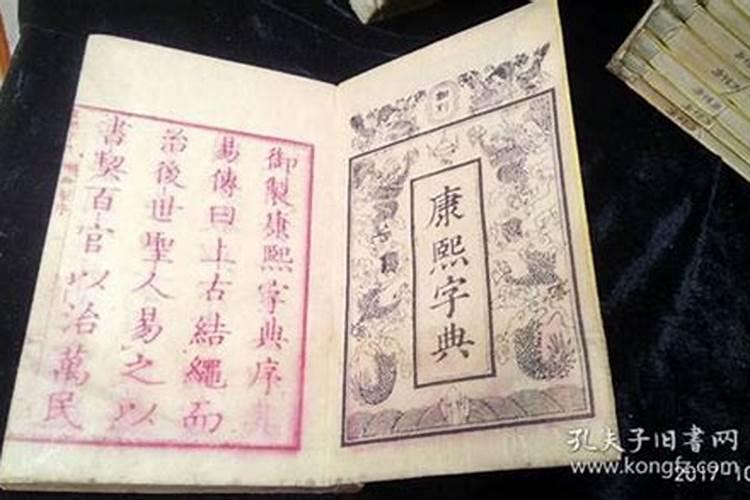 御製
康熙字典
御製康熙字典序
易傳曰上古結繩而
治後世聖人易之以
書契百官以治萬民
孔夫子旧書网
www.kongfz.com
2017 10